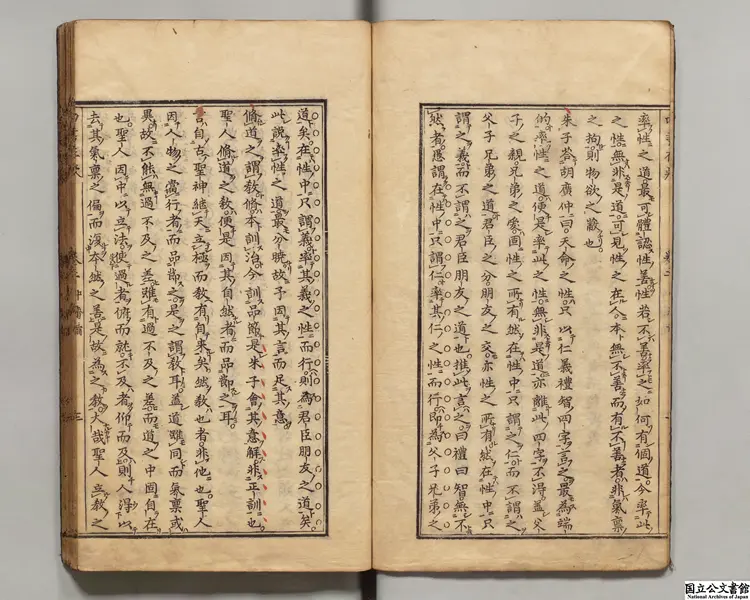 率性之道最可體認性善性若不善率之如何有個道今率此
之性無非是道可見性之在人本無不善而有不善者非氣稟
之拘則物欲之蔽也
朱子荅胡廣仲曰天命之性只以仁義禮智四字言之最為端
的率性之道便是率此之性無非是道亦離此四字不得蓋父
子之親兄弟之愛固性之所有然在性中只謂之仁而不謂之
父子兄弟之道也君臣之分朋友之交亦性之所有然在性中只
謂之義而不謂之君臣朋友之道也推此言之曰禮曰智無不
然者愚謂在性中只謂仁率其仁之性而行即為父子兄弟之
道矣在性中只謂義率其義之性而行則為君臣朋友之道矣
此說率性之道最分曉故予因其言而足其意
脩道之謂教脩本訓治今訓品節是朱子會其意解非正訓也
聖人脩道之教便是因其自然者而品節之耳
言自古聖神繼天立極而教有自来矣然教也者非他也聖人
因人物之當行者而品節之是之謂教耳蓋道雖同而氣稟或
異故不能無過不及之差雖有過不及之差而道之中固自在
也聖人因中以立法使過者俯而就不及者仰而及則人得以
去其氣稟之偏而復本然之善是故為之教大哉聖人立教之
国立公文書館
National Archives of Japan